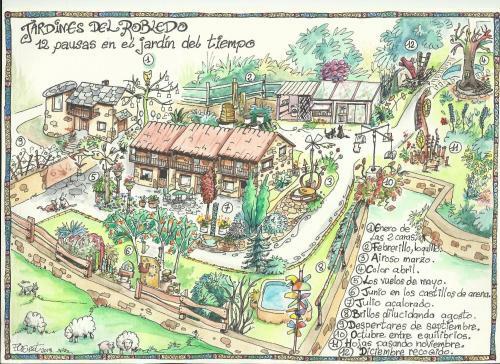 JARDINES DEL ROBLEDO
12 pausas en el jardín del tiempo
① Enero de
las 2 caras.
② Febrerillo, loquillo.
③ Airoso marzo.
④ Color abril.
⑤ Los vuelos de mayo.
⑥ Junio en los castillos de arena.
⑦ Julio acalorado.
⑧ Brillos dilucidando agosto.
⑨ Despertares de septiembre.
⑩ Octubre entre equilibrios.
⑪ Hojas pasando noviembre.
⑫ Diciembre recogido.
1
2
12
4
9
3
11
5
7
10
6
8